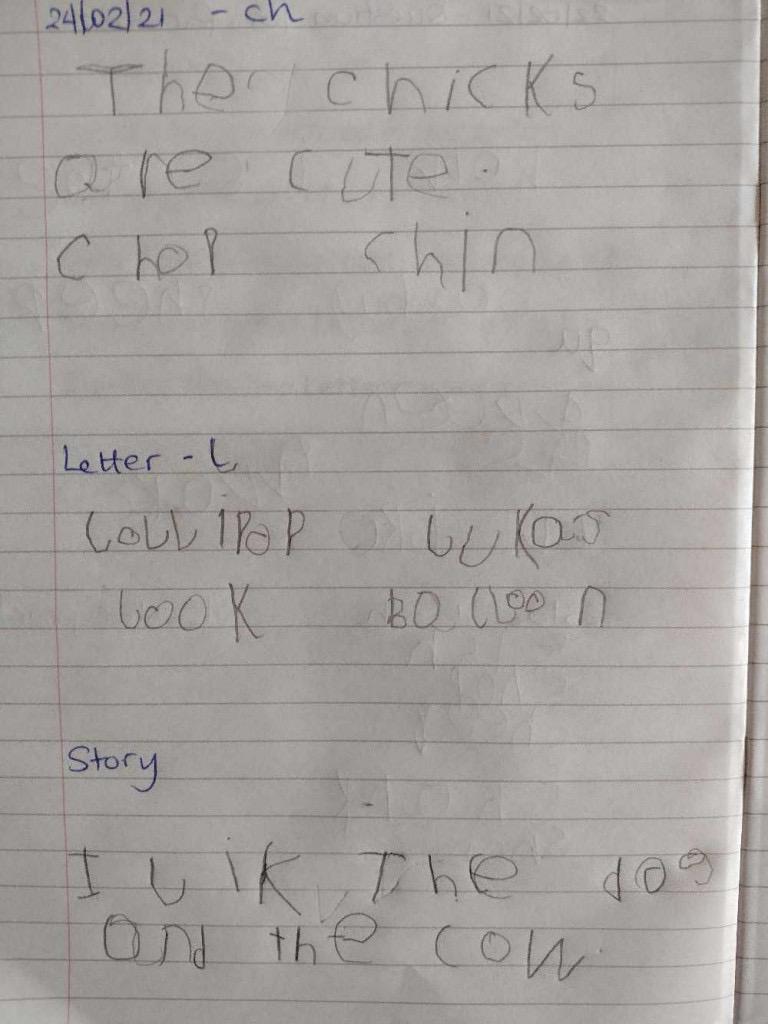 24/02/21 - ch
The chicks
are cute.
chop chin
Letter - L
LoLLipop Lukas
Look Balloon
Story
I Lik The dog
and the cow.